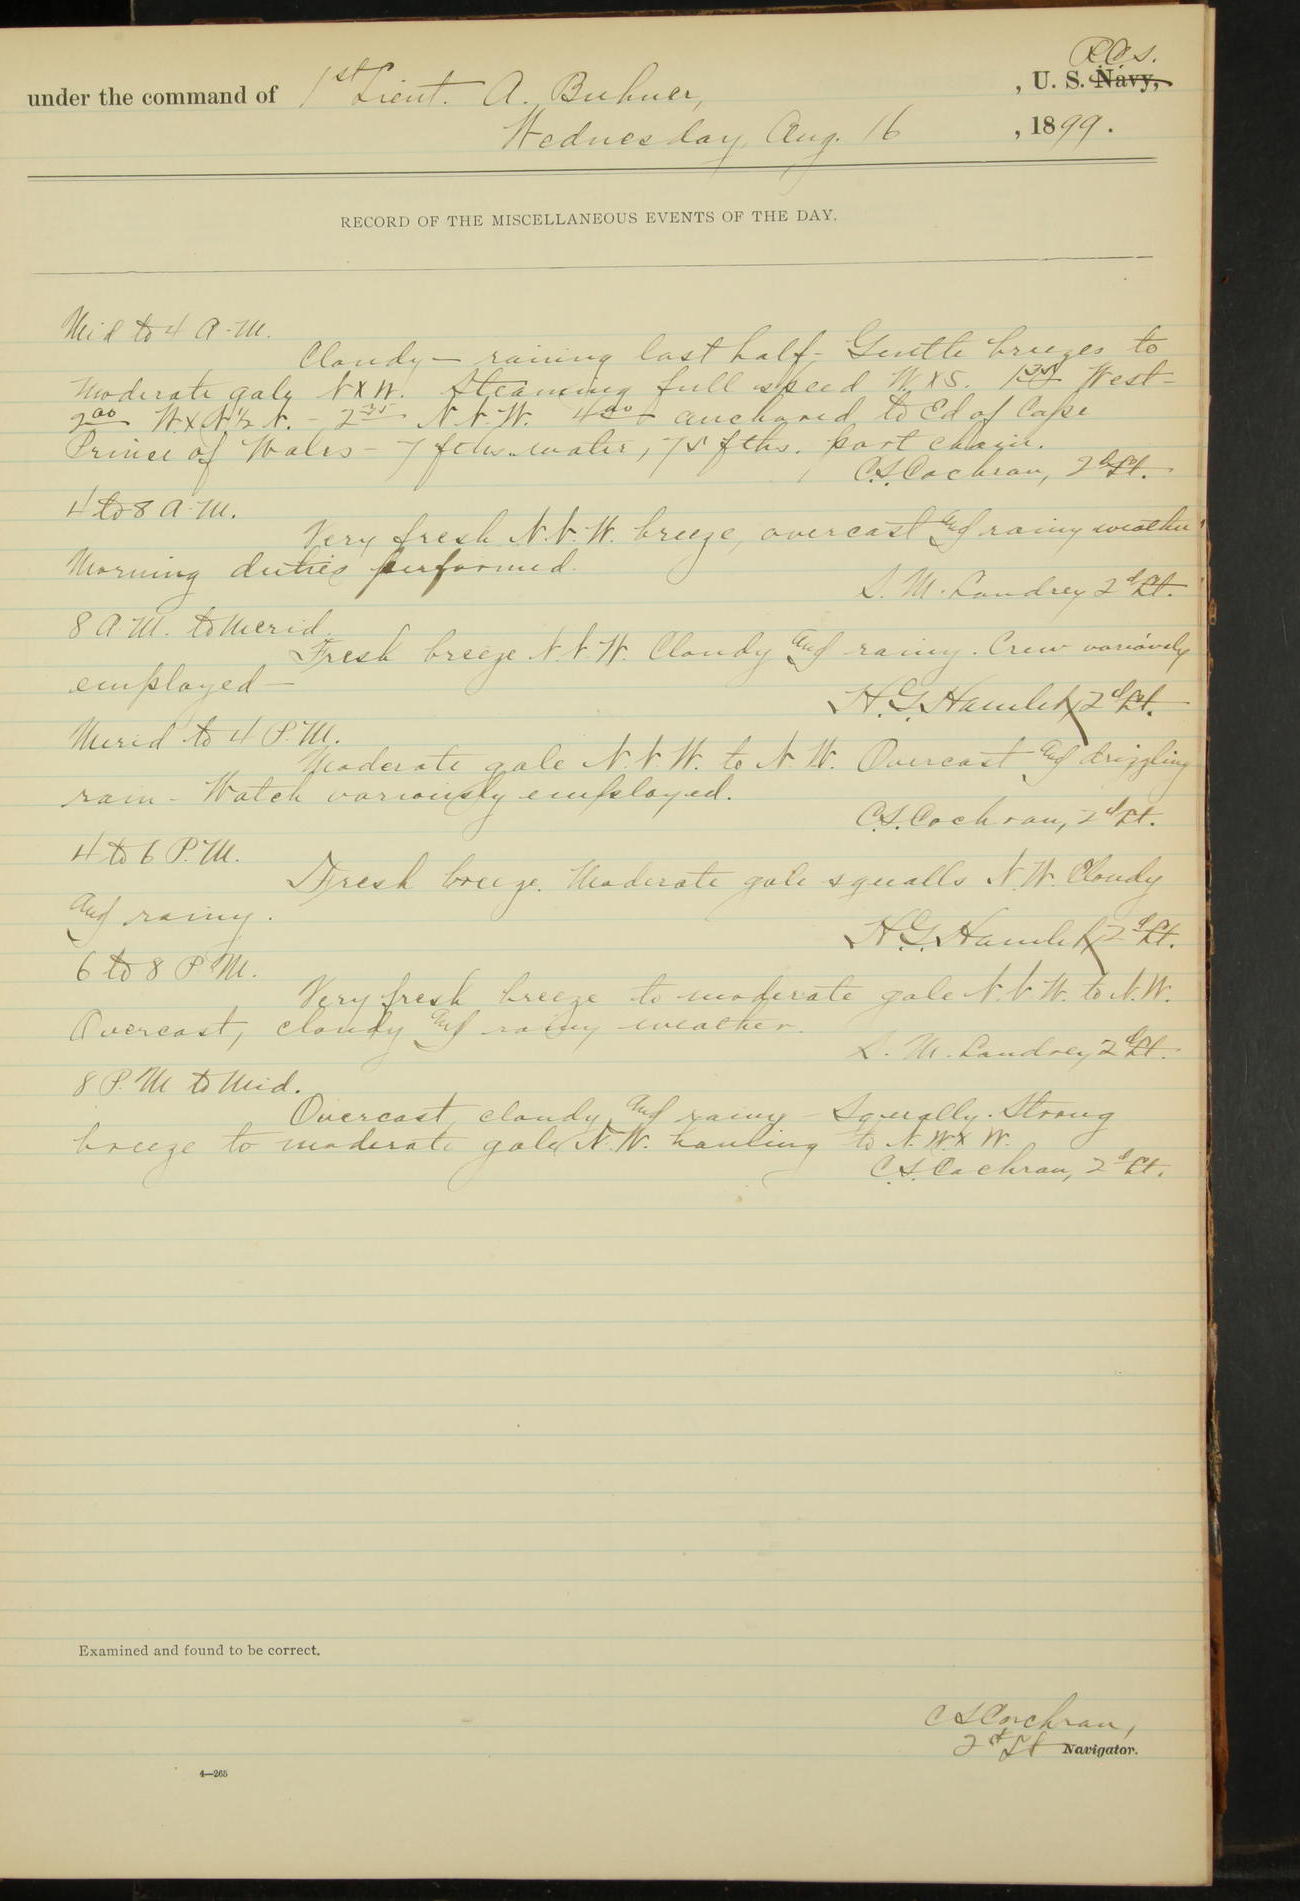 R.C.S.
under the command of 1st Lieut. A. Buhner, , U. S. Navy,
Wednesday, Aug. 16 , 1899.
RECORD OF THE MISCELLANEOUS EVENTS OF THE DAY.
Mid to 4 A.M.
Cloudy — raining last half - Gentle breezes to
moderate gale N x W. Steaming full speed W x S. West -
2 00 W. x N. 1/2 N. - 2 35 N.N.W. 4 00 anchored to Ed of Cape
Prince of Wales - 7 fths. water, 75 fths. port chain.
C.S. Cochran, 2d Lt.
4 to 8 A.M.
Very fresh N.N.W. breeze, overcast and rainy weather
Morning duties performed.
S. M. Landrey 2d Lt.
8 A.M. to Merid.
Fresh breeze N.N.W. Cloudy and rainy. Crew variously
employed —
H.G. Hamlet 2d Lt.
Merid to 4 P.M.
Moderate gale N.N.W. to N.W. Overcast and drizzling
rain - Watch variously employed.
C.S. Cochran, 2d Lt.
4 to 6 P.M.
Fresh breeze. Moderate gale squalls N.W. Cloudy
and rainy.
H.G. Hamlet 2d Lt.
6 to 8 P.M.
Very fresh breeze to moderate gale N.N.W. to N.W.
Overcast, cloudy and rainy weather.
S. M. Landrey 2d Lt.
8 P.M to Mid.
Overcast, cloudy and rainy - Squally. Strong
breeze to moderate gale N.W. hauling to N.W. x W.
C.S. Cochran, 2d Lt.
Examined and found to be correct.
C S Cochran,
2d Lt Navigator.
4—265